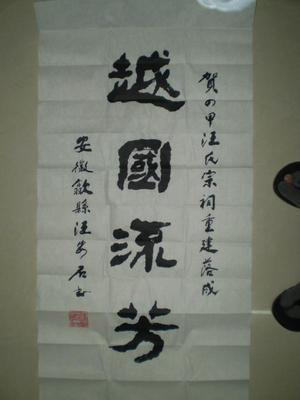 賀四甲汪氏宗祠重建落成
越國流芳
安徽歙縣汪